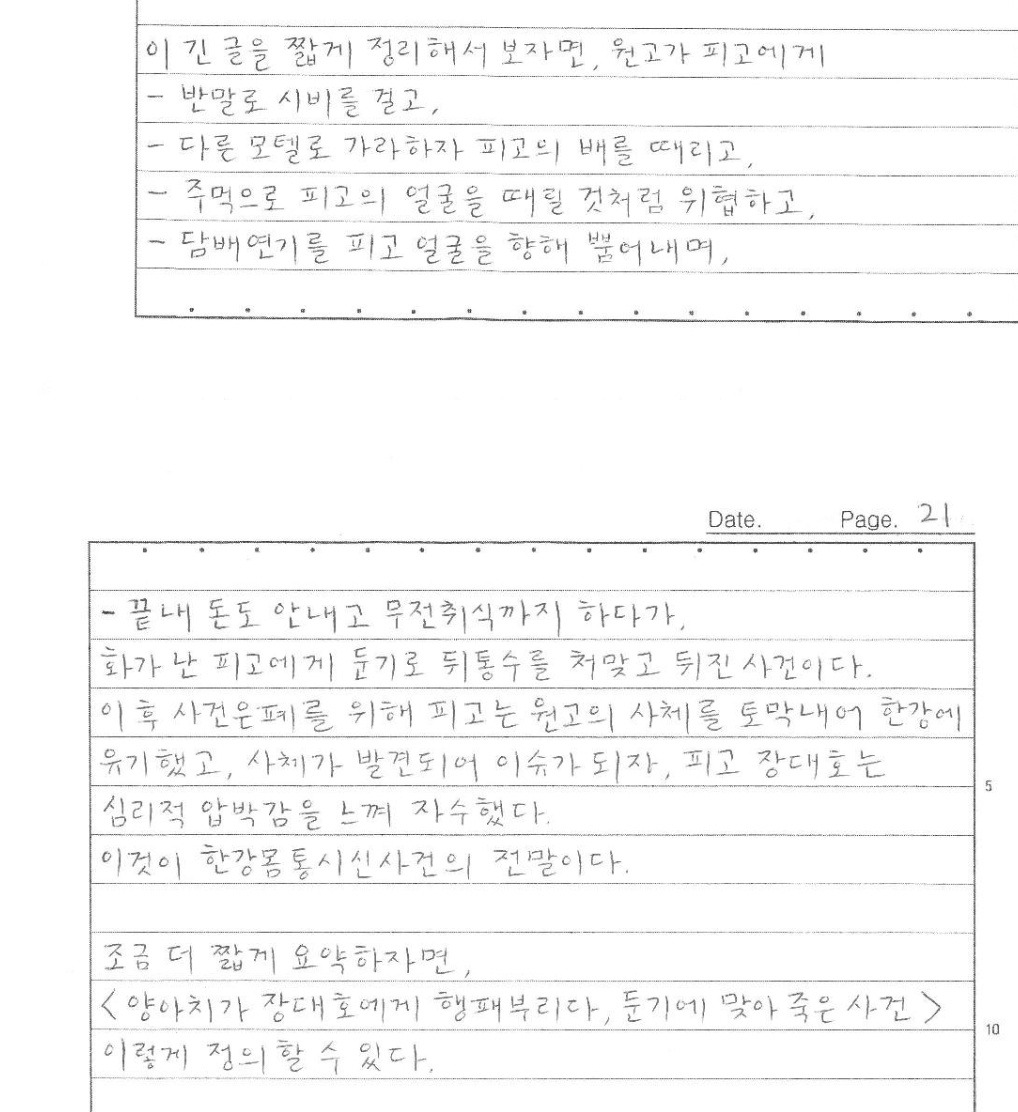 이 긴 글을 짧게 정리해서 보자면, 원고가 피고에게
- 반말로 시비를 걸고,
- 다른 모텔로 가라하자 피고의 배를 때리고,
- 주먹으로 피고의 얼굴을 때릴 것처럼 위협하고,
- 담배연기를 피고 얼굴을 향해 뿜어내며,
Date. Page. 21
- 끝내 돈도 안내고 무전취식까지 하다가,
화가 난 피고에게 둔기로 뒤통수를 처맞고 뒤진 사건이다.
이후 사건은폐를 위해 피고는 원고의 사체를 토막내어 한강에
유기했고, 사체가 발견되어 이슈가 되자, 피고 장대호는
5
심리적 압박감을 느껴 자수했다.
이것이 한강몸통시신사건의 전말이다.
조금 더 짧게 요약하자면,
<양아치가 장대호에게 행패부리다, 둔기에 맞아 죽은 사건>
10
이렇게 정의할 수 있다.